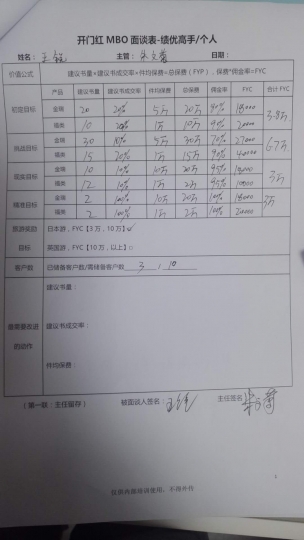 开门红 MBO 面谈表-绩优高手/个人
姓名： 主管： 日期：
价值公式 建议书量*建议书成交率*件均保费=总保费（FYP），保费*佣金率=FYC
产品 建议书量 建议书成交率 件均保费 总保费 佣金率 FYC 合计 FYC
初定目标 金瑞 20 20% 5万 20万 90% 18000 3.8万
福类 10 1万 10万 90%
挑战目标 金瑞 30 10% 5万 30万 27000 6.7万
福类 15 20% 1万 15万 90%
现实目标 金瑞 10 10% 10万 20万 95% 3万
福类 12 10% 1万 2万 95% 10000
精准目标 金瑞 2 100% 10万 20万 3万
福类 2 100% 1万 2万 100% 20000
旅游奖励 日本游，FYC【3万，10万】
目标 英国游，FYC【10万，以上】□
客户数 已储备客户数/需储备客户数 3 : 10
需要改进的动作
建议书量：
建议书成交率：
件均保费：
（第一联：主任留存） 被面谈人签名： 主任签名：
仅供内部培训使用，不得外传
1